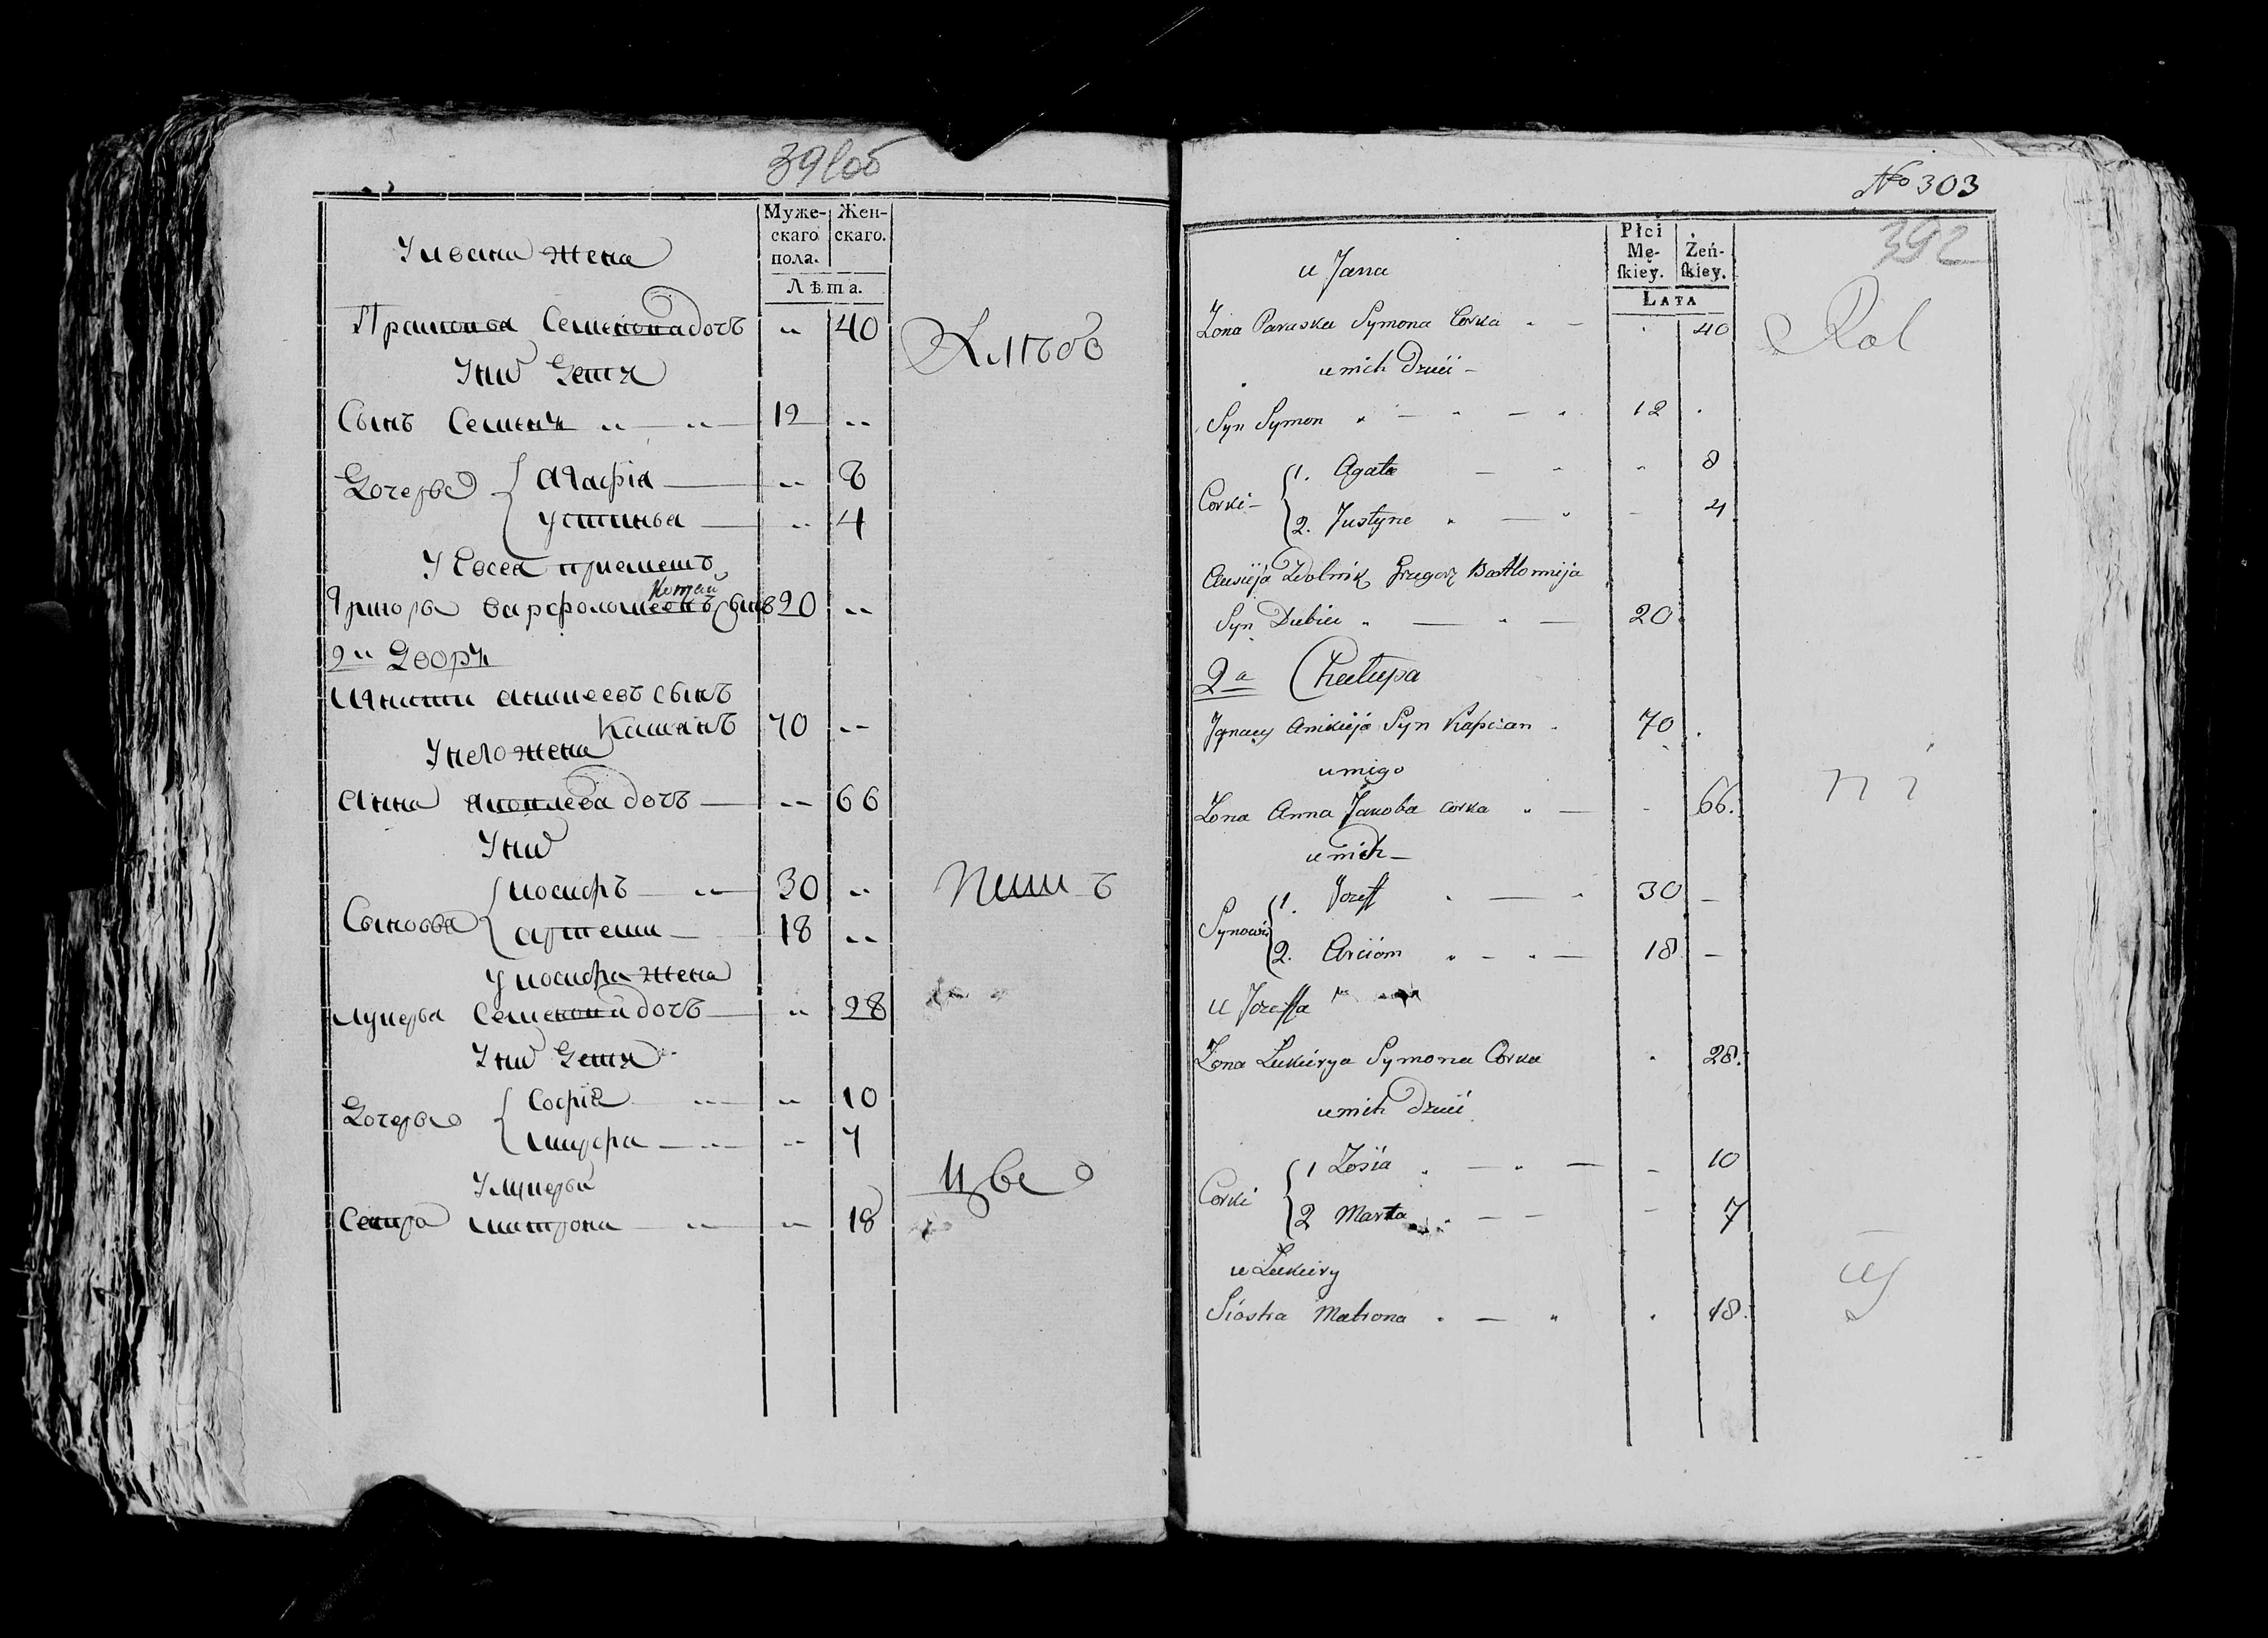 391об
Муже-
скаго
пола.
Жен-
скаго.
Лѣта.
У ивана жена
Прасковья Семенова дочь " 40
У них Дети
Сынъ Семенъ 12 "
Дочерьи { Агафіа " 8
Устинья " 4
У Евсея приемыш
Григорьи варфоломеевъ сынъ 20 "
2й Дворъ
Игнатий Аникеевъ сынъ
Капанъ 70 "
У него жена
Анна Яковлева дочь " 66
У них
Сыновья { иосифъ 30 "
артеми 18 "
У иосифа жена
лукерья Семенова дочь " 28
У них Дети
Дочерьи { Софиа " 10
марфа " 7
У лукерьи
Сестра матрона " 18
Хлѣбо
паш ъ
цве о
№ 303
392
Płci
Mę-
ſkiey.
Żeń-
ſkiey.
Lata
u Jana
Żona Paraska Symona Corka " 40
u nich Dzieci
Syn Symon 12 "
Corki { 1. Agata 8
2. Justyna 4
Zdolnik Gregorz Bartłomieja
Syn Dubiei 20
2a Chałupa
Ignacy Anikieja Syn Kapcian 70
u niego
Żona Anna Jakoba corka 66.
u nich
Synowie { 1. Jozeff 30
2. Arciom 18
u Jozeffa
Żona Lukierya Symona Corka 28.
u nich dzieci
Corki { 1 Zosia 10
2 Marta 7
u Lukiery
Siostra Matrona 18.
Rol
ni
cy